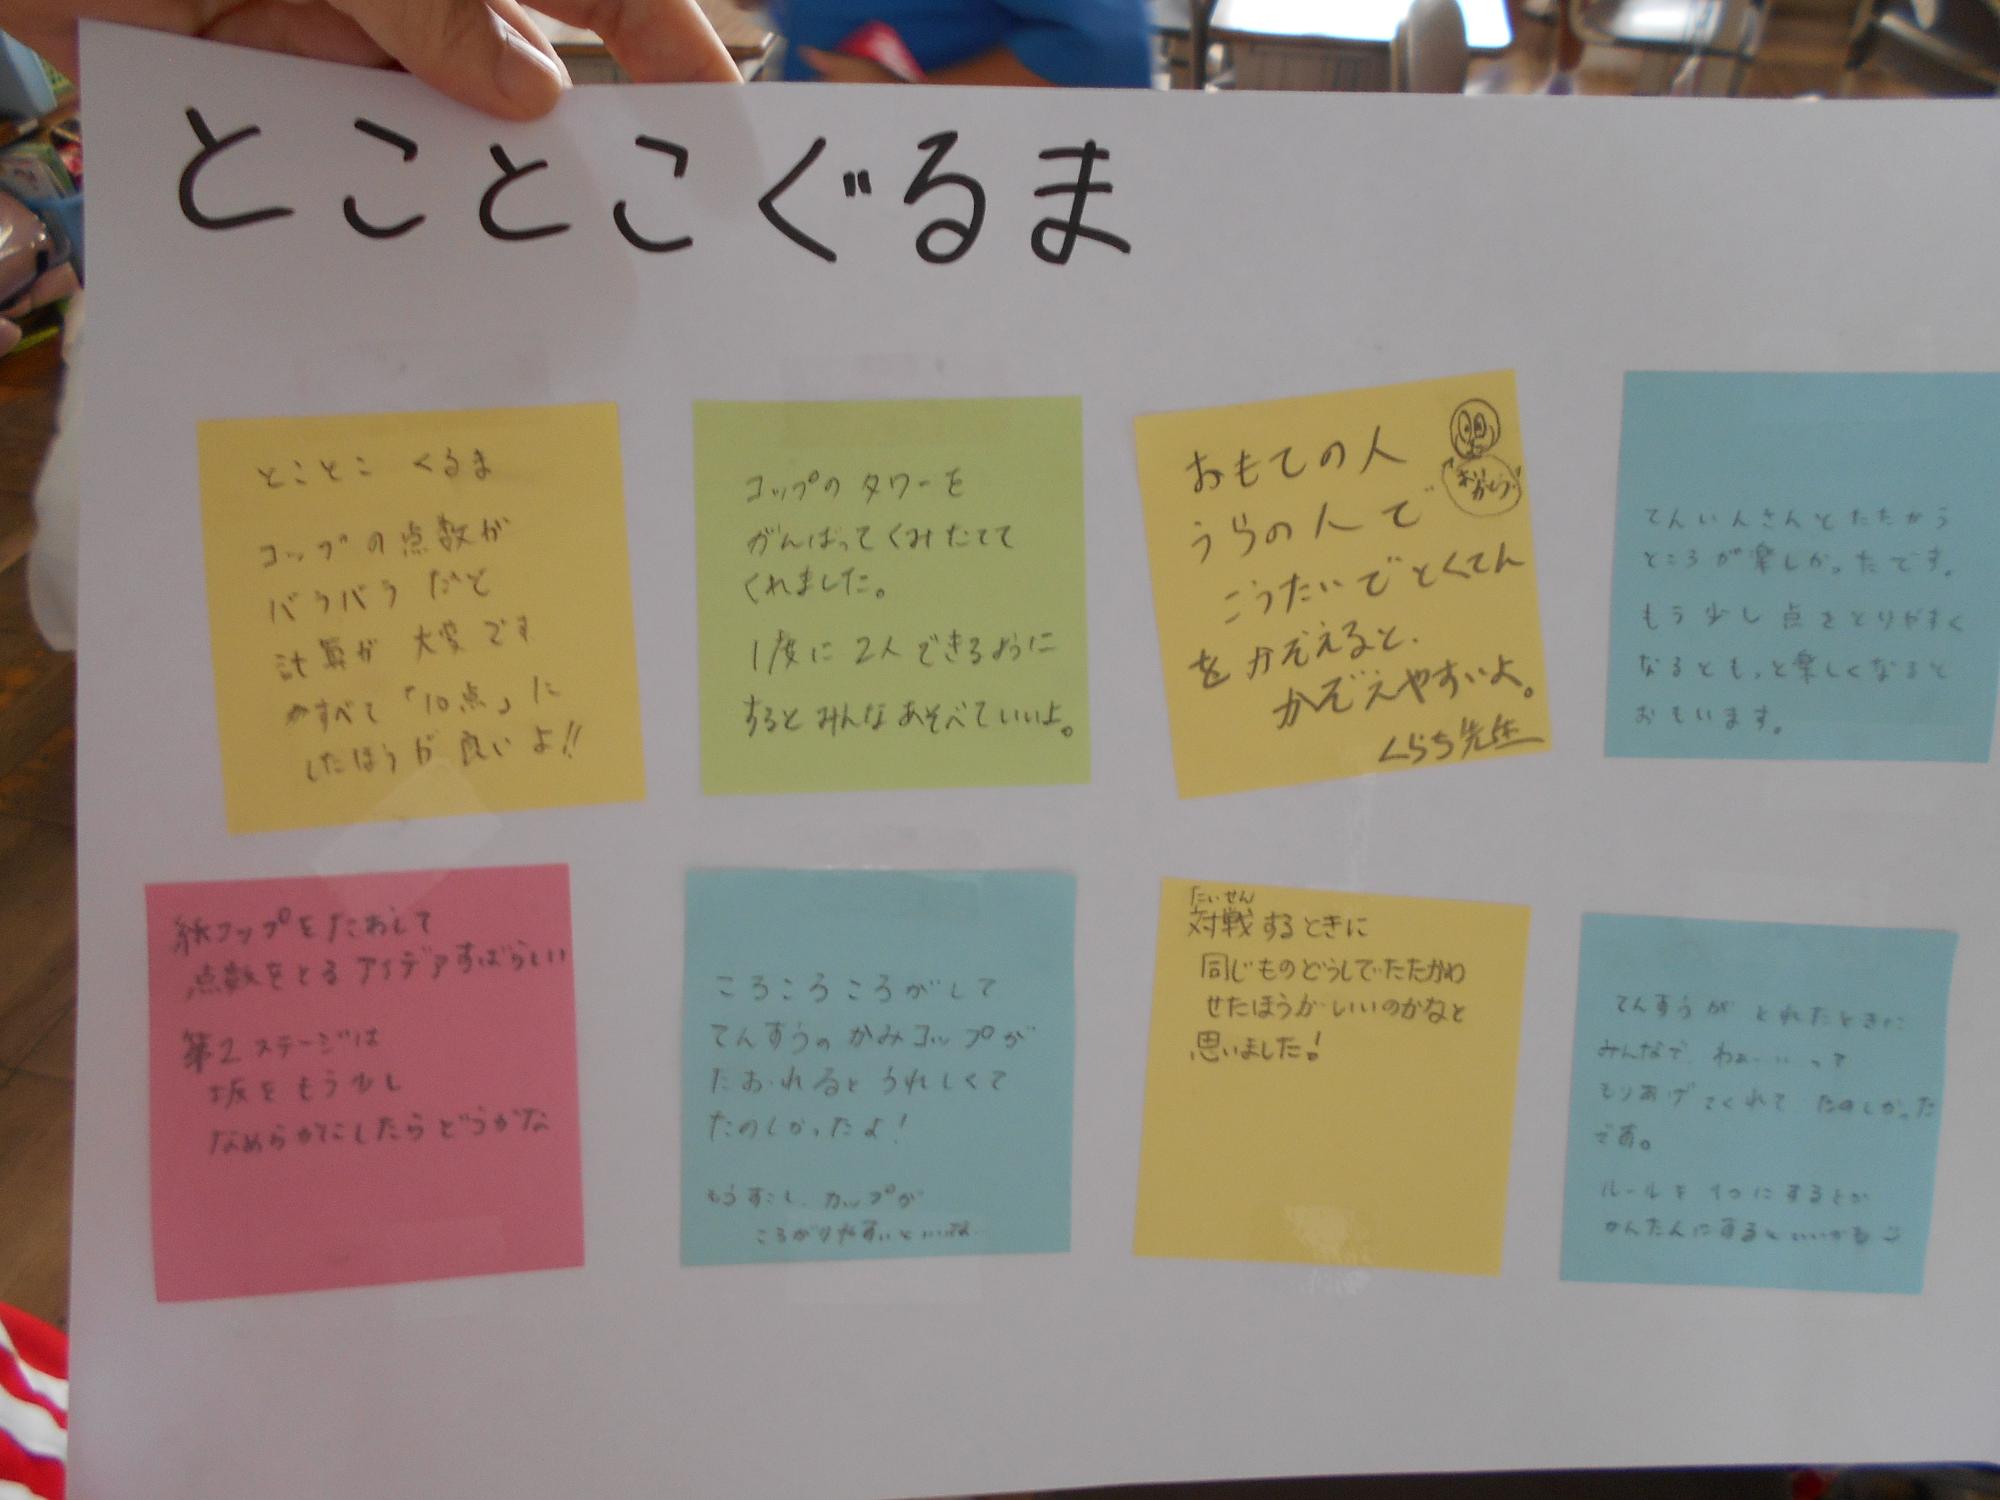 とことこぐるま
とことこ くるま
コップの点数が
バラバラだと
計算が 大変です
すべて「10点」に
したほうが 良いよ!!
コップのタワーを
がんばってくみたてて
くれました。
1度に2人できるように
するとみんなあそべていいよ。
おもての人
うらの人で
こうたいでとくてん
をかぞえると、
かぞえやすいよ。
くらち先生
てんいんさんとたたかう
ところが楽しかったです。
もう少し点をとりやすく
なるともっと楽しくなると
おもいます。
紙コップをたおして
点数をとるアイデアすばらしい
第2ステージは
坂をもう少し
なめらかにしたらどうかな
ころころころがして
てんすうのかみコップが
たおれるとうれしくて
たのしかったよ!
もうすこしカップが
ころがりやすいといいな
たいせん
対戦するときに
同じものどうしでたたかわ
せたほうがいいのかなと
思いました!
てんすうが とれたときに
みんなで わぁ……って
もりあげてくれて たのしかった
です。
ルールを1つにするとか
かんたんにするといいかも